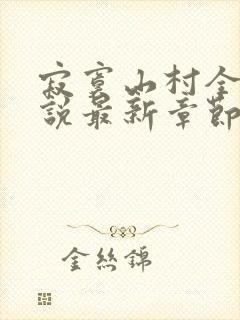 寂寞山村全
説最新章節
金絲錦